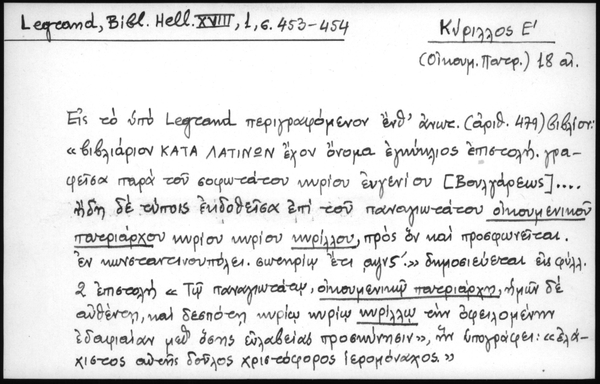 Legrand, Bibl. Hell. XVIII, 1, σ. 453-454
Κύριλλος Ε'
(Οἰκουμ. Πατρ.) 18 αἰ.
Εἰς τὸ ὑπὸ Legrand περιγραφόμενον ἔνθ' ἀνωτ. (ἀριθ. 479) βιβλίον:
«Βιβλιάριον ΚΑΤΑ ΛΑΤΙΝΩΝ ἔχον ὄνομα ἐγκύκλιος ἐπιστολή. γρα-
φεῖσα παρὰ τοῦ σοφωτάτου κυρίου εὐγενίου [Βουλγάρεως]....
ἤδη δὲ τύποις ἐκδοθεῖσα ἐπὶ τοῦ παναγιωτάτου οἰκουμενικοῦ
πατριάρχου κυρίου κυρίου κυρίλλου, πρὸς ὃν καὶ προσφωνεῖται.
ἐν κωνσταντινουπόλει. σωτηρίῳ ἔτει αψνς΄.» δημοσιεύεται εἰς φύλλ.
2 ἐπιστολὴ «Τῷ παναγιωτάτῳ, οἰκουμενικῷ πατριάρχῃ, ἡμῶν δὲ
αὐθέντῃ, καὶ δεσπότῃ κυρίῳ κυρίῳ κυρίλλῳ τὴν ὀφειλομένην
ἐδαφιαίαν μεθ' ὅσης εὐλαβείας προσκύνησιν», ἣν ὑπογράφει: «ἐλά-
χιστος αὐτῆς δοῦλος χριστόφορος ἱερομόναχος.»